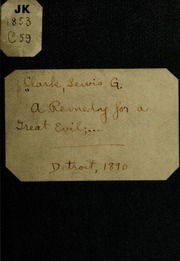 JK
1853
C59
Clark, Lewis G.
A Remedy for a
Great Evil;...
Detroit, 1890